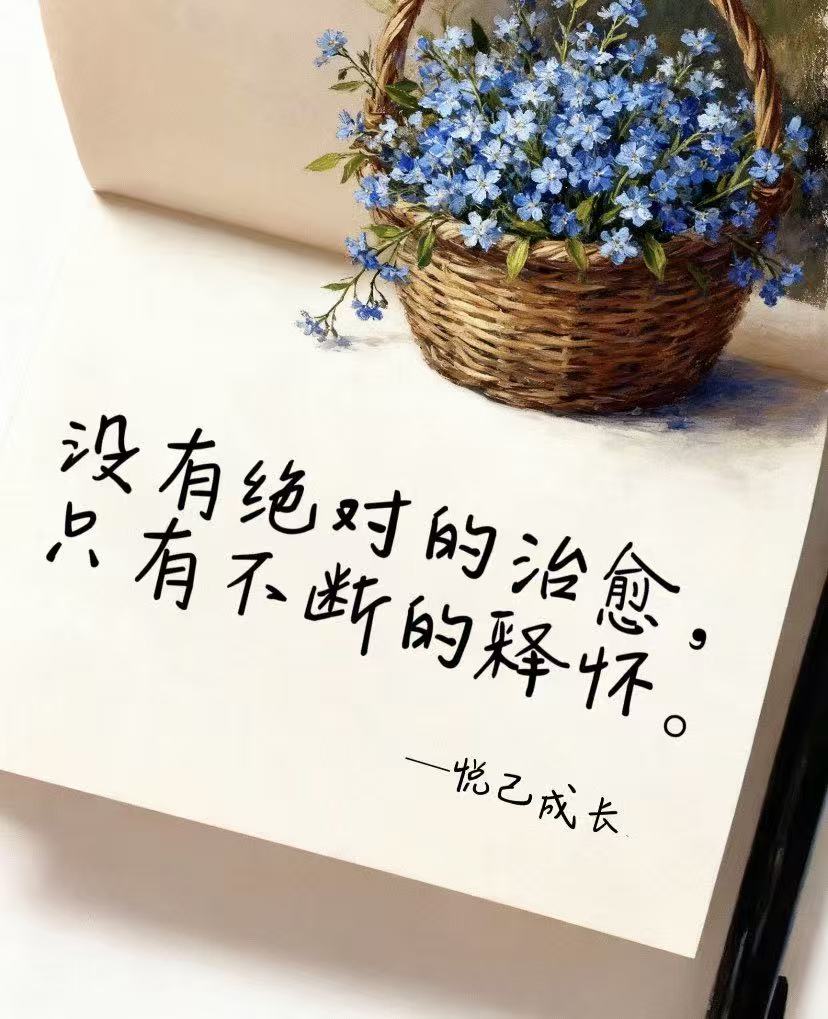 没有绝对的治愈，
只有不断的释怀。
—悦己成长